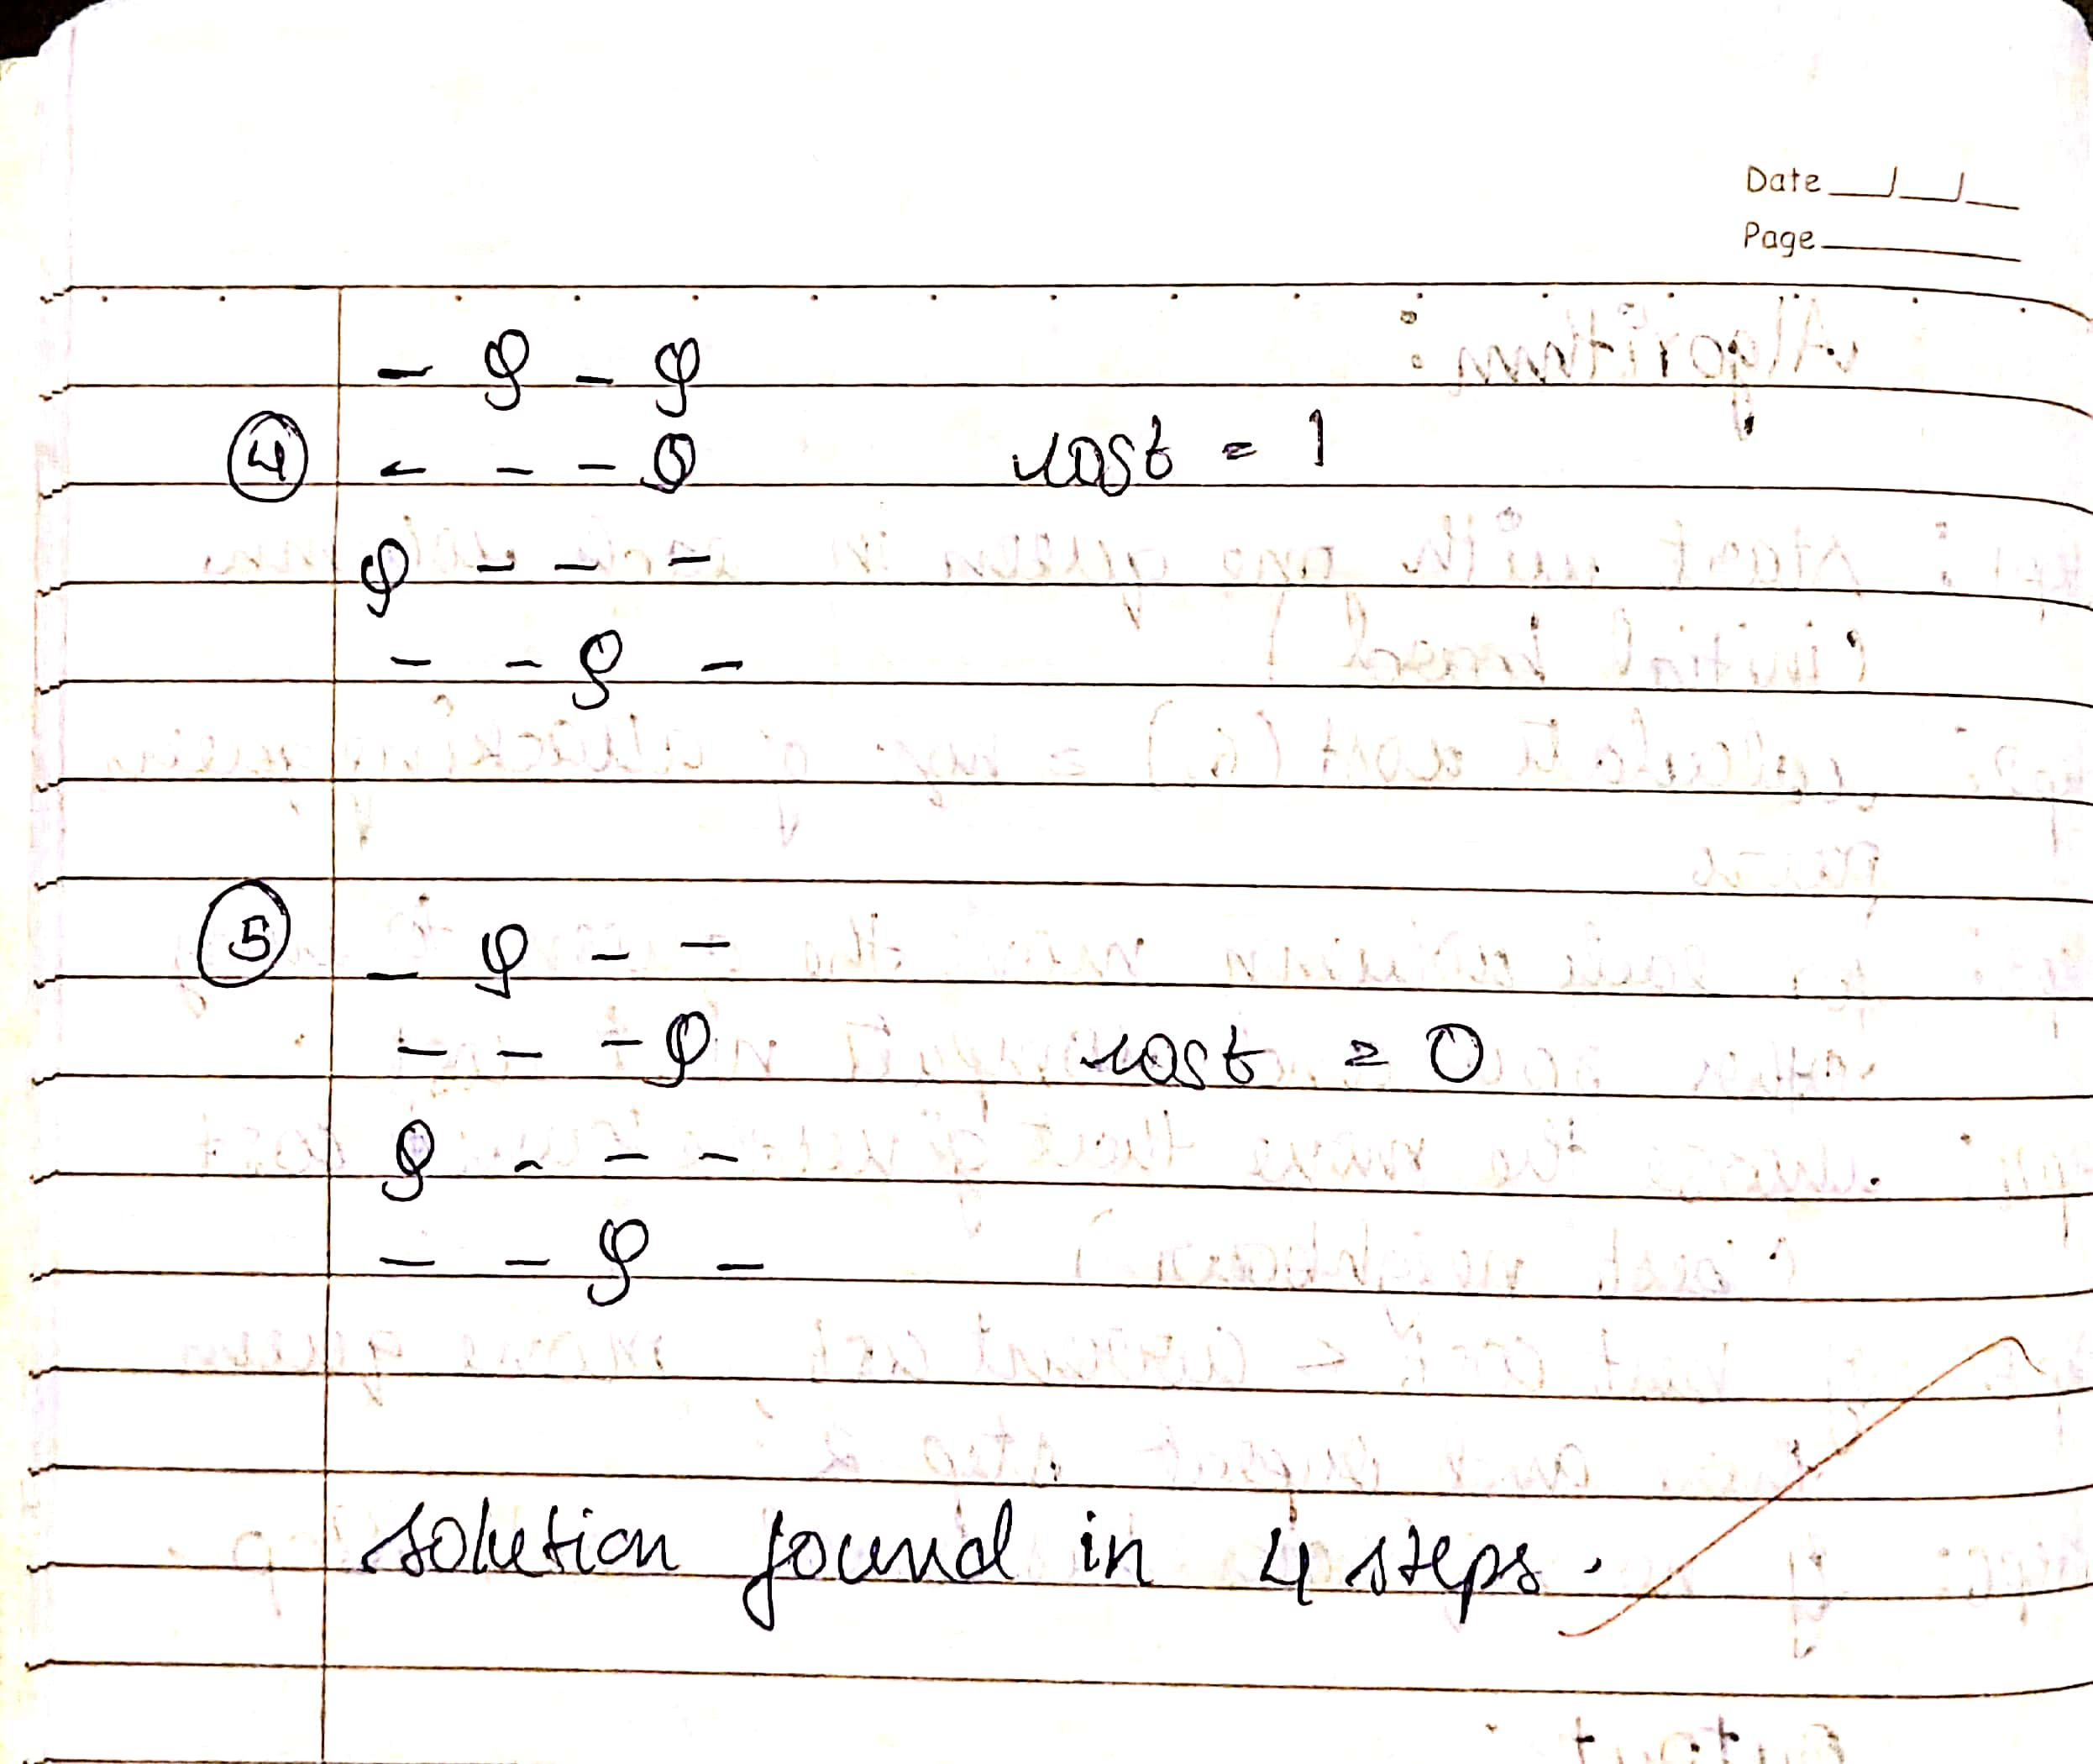 Date
Page
- Q - Q
④ - - - Q cost = 1
Q - - -
- - Q -
⑤ - Q - -
- - - Q cost = 0
Q - - -
- - Q -
solution found in 4 steps.